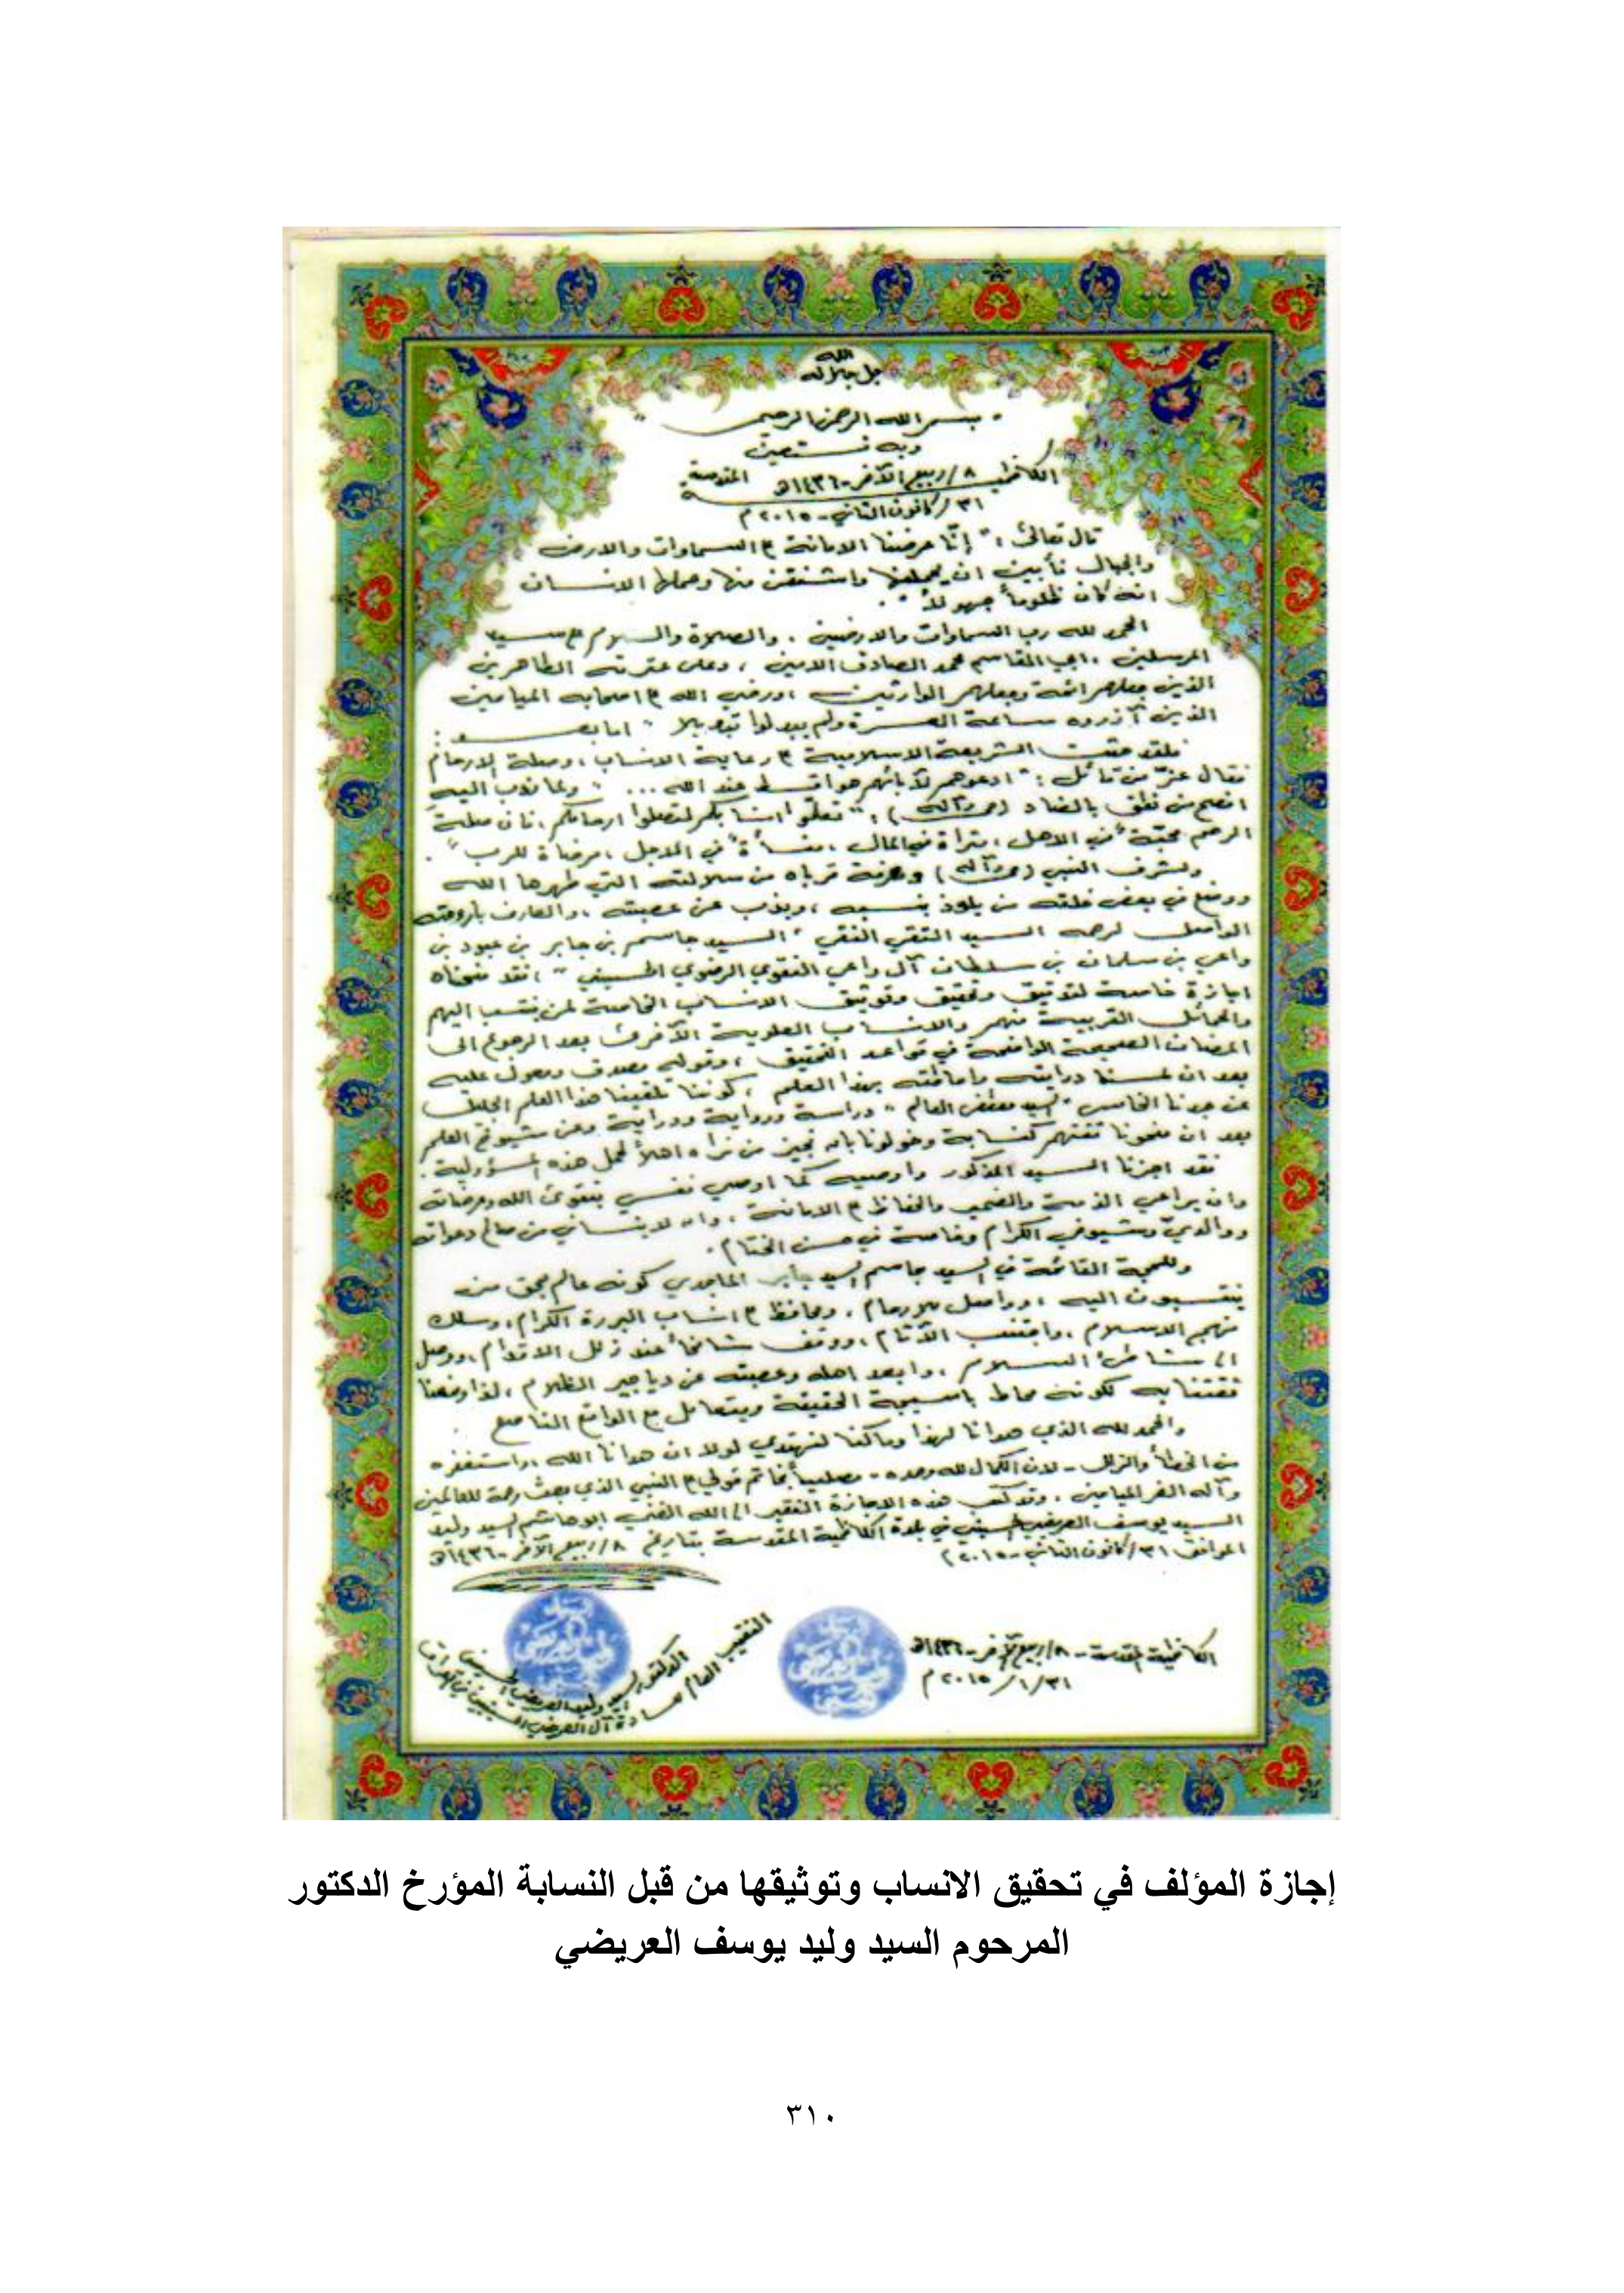 الله
جل جلاله
" بسم الله الرحمن الرحيم "
وبه نستعين
الكاظمية المقدسة ٨/ربيع الآخر-١٤٣٦هـ
٣١/كانون الثاني-٢٠١٥م
قال تعالى: " إنّا عرضنا الامانة ع السماوات والارض
والجبال فأبين ان يحملنها واشفقن منها وحملها الانسان
انه كان ظلوماً جهولاً ".
الحمد لله رب السماوات والارضين ، والصلاة والسلام ع سيد
المرسلين ، ابي القاسم محمد الصادق الامين ، وعلى عترته الطاهرين
الذين جعلهم ائمة وجعلهم الوارثين ، ورضي الله ع اصحابه الميامين
الذين آزروه ساعة العسرة ولم يبدلوا تبديلا " اما بعد :
فلقد حثت الشريعة الاسلامية ع رعاية الانساب ، وصلة الارحام
فقال عزّ من قائل : " ادعوهم لآبائهم هو اقسط عند الله ... " ولما ندب اليه
افصح من نطق بالضاد (ص وآله) : " تعلّموا انسابكم لتصلوا ارحامكم ، فان صلة
الرحم محبّة في الاهل ، مثراة في المال ، منسأة في الاجل ، مرضاة للرب ".
ولشرف النبي (ص وآله) وعزة قرباه من سلالته التي طهرها الله
ووضع في بعض خلقه من يلوذ بنسبه ، ويذب عن عصبته ، والعارف بأرومته
الواصل لرحمه السيد التقي النقي " السيد جاسم بن جابر بن عبود بن
واعي بن سلمان بن سلطان آل واعي النقوي الرضوي الحسيني " ، فقد منحناه
اجازة خاصة لتوثيق وتحقيق وتوثيق الانساب الخاصة لمن ينتسب اليهم
والحمائل القريبة منهم والانساب العلوية الآخرى بعد الرجوع الى
المضان الصحيحة الواضحة في قواعد التحقيق ، وقوله مصدق ومعول عليه
بعد ان لمسنا درايته واحاطته بهذا العلم ، كوننا تلقينا هذا العلم الجليل
عن جدنا الخامس " السيد العالم " دراسة ورواية ودراية وعن شيوخ العلم
بعد ان منحونا ثقتهم كنسابة وخولونا بان نجيز من نراه اهلاً لحمل هذه المسؤولية .
فقد اجزنا السيد المذكور واوصيه كما اوصي نفسي بتقوى الله ومرضاته
وان يراعي الذمة والضمير والحفاظ ع الامانة ، وان لا ينساني من صالح دعواته
ووالديّ وشيوخي الكرام وخاصة في حسن الختام .
وللحجة القائمة في السيد جاسم السيد جابر الماجدي كونه عالم بحق من
ينتسبون اليه ، وواصل للارحام ، ومحافظ ع انساب البررة الكرام ، وسلك
نهج الاسلام ، واجتنب الآثام ، ووقف شامخاً عند زلل الاقدام ، ووصل
الى شاطئ السلام ، وابعد اهله وعصبته عن دياجير الظلام ، لذا وضعنا
ثقتنا به لكونه محاط باسيجة الحقيقة ويتعامل مع الواقع الناصع .
والحمد لله الذي هدانا لهذا وما كنا لنهتدي لولا ان هدانا الله ، واستغفره
من الخطأ والزلل - لان الكمال لله وحده - مصلياً بخاتم قولي ع النبي الذي بعث رحمة للعالمين
وآله الغر الميامين . وقد كتب هذه الاجازة الفقير الى الله الغني ابو هاشم السيد وليد
السيد يوسف العريضي الحسيني في بلدة الكاظمية المقدسة بتاريخ ٨/ربيع الآخر-١٤٣٦هـ
الموافق ٣١/كانون الثاني-٢٠١٥م
الكاظمية المقدسة - ٨/ربيع الآخر-١٤٣٦هـ
٣١/١/٢٠١٥م
الدكتور السيد وليد العريضي الحسيني
النقيب العام لسادة آل العريضي الحسينيين في العراق
إجازة المؤلف في تحقيق الانساب وتوثيقها من قبل النسابة المؤرخ الدكتور
المرحوم السيد وليد يوسف العريضي
٣١٠